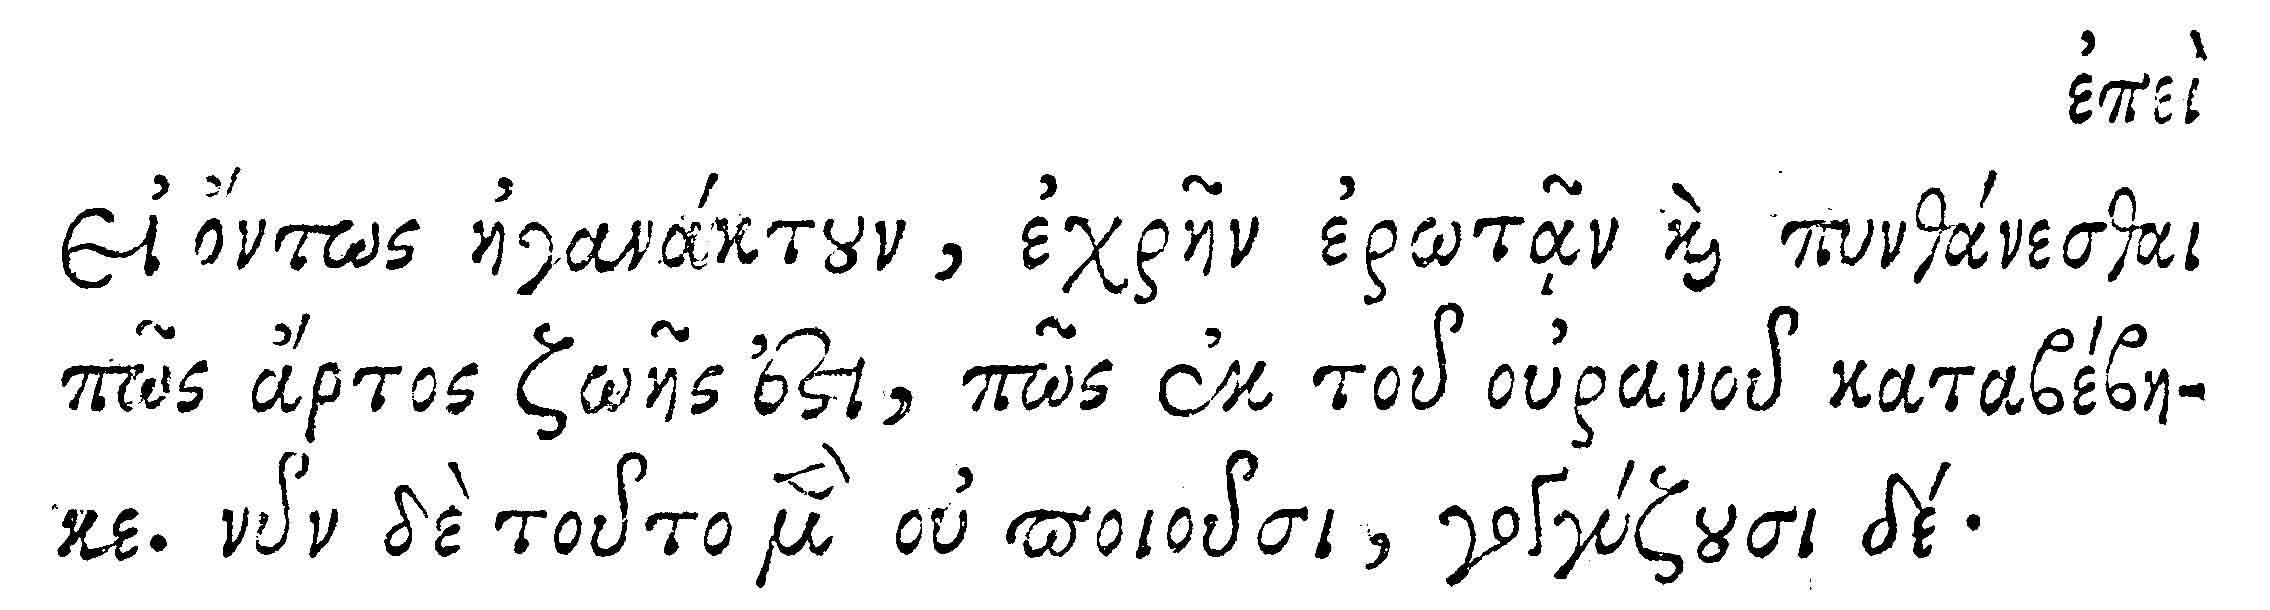 ἐπεὶ
Εἰ ὄντως ἠγανάκτουν, ἐχρῆν ἐρωτᾷν καὶ πυνθάνεσθαι
πῶς ἄρτος ζωῆς ἐστι, πῶς ἐκ τοῦ οὐρανοῦ καταβέβη-
κε. νῦν δὲ τοῦτο μὲν οὐ ποιοῦσι, γογγύζουσι δέ.